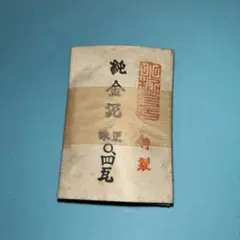 純金泥
正味
0.4瓦
特製